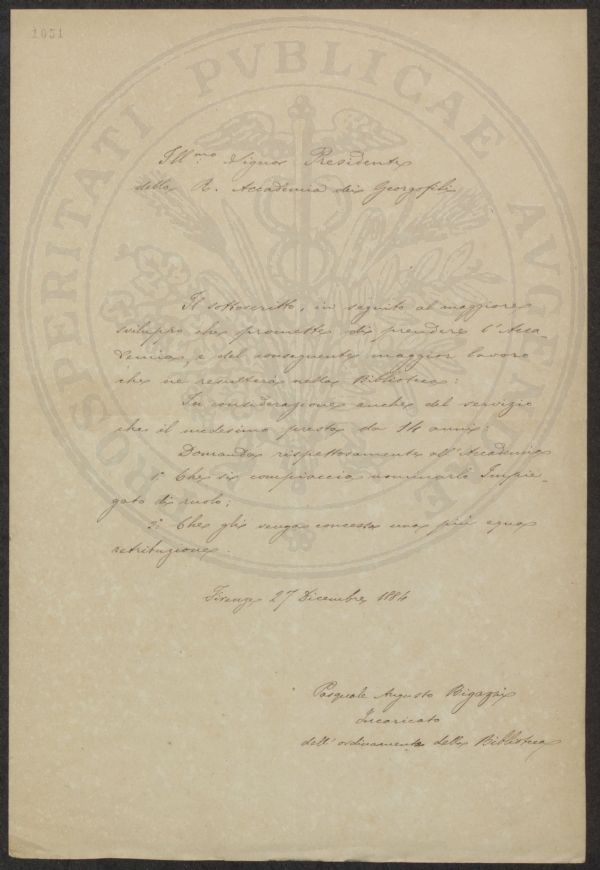 1051
PROSPERITATI PVBLICAE AVGENDAE
Ill.mo Signor Presidente
della R. Accademia dei Georgofili
Il sottoscritto, in seguito al maggiore
sviluppo che promette di prendere l'Acca-
demia, e del conseguente maggior lavoro
che ne resulterà nella Biblioteca:
In considerazione anche del servizio
che il medesimo presta da 14 anni:
Domanda rispettosamente all'Accademia
1° Che si compiaccia nominarlo Impie-
gato di ruolo;
2° Che gli venga concessa una più equa
retribuzione.
Firenze 27 Dicembre 1884
Pasquale Augusto Bigazzi
Incaricato
dell'ordinamento della Biblioteca